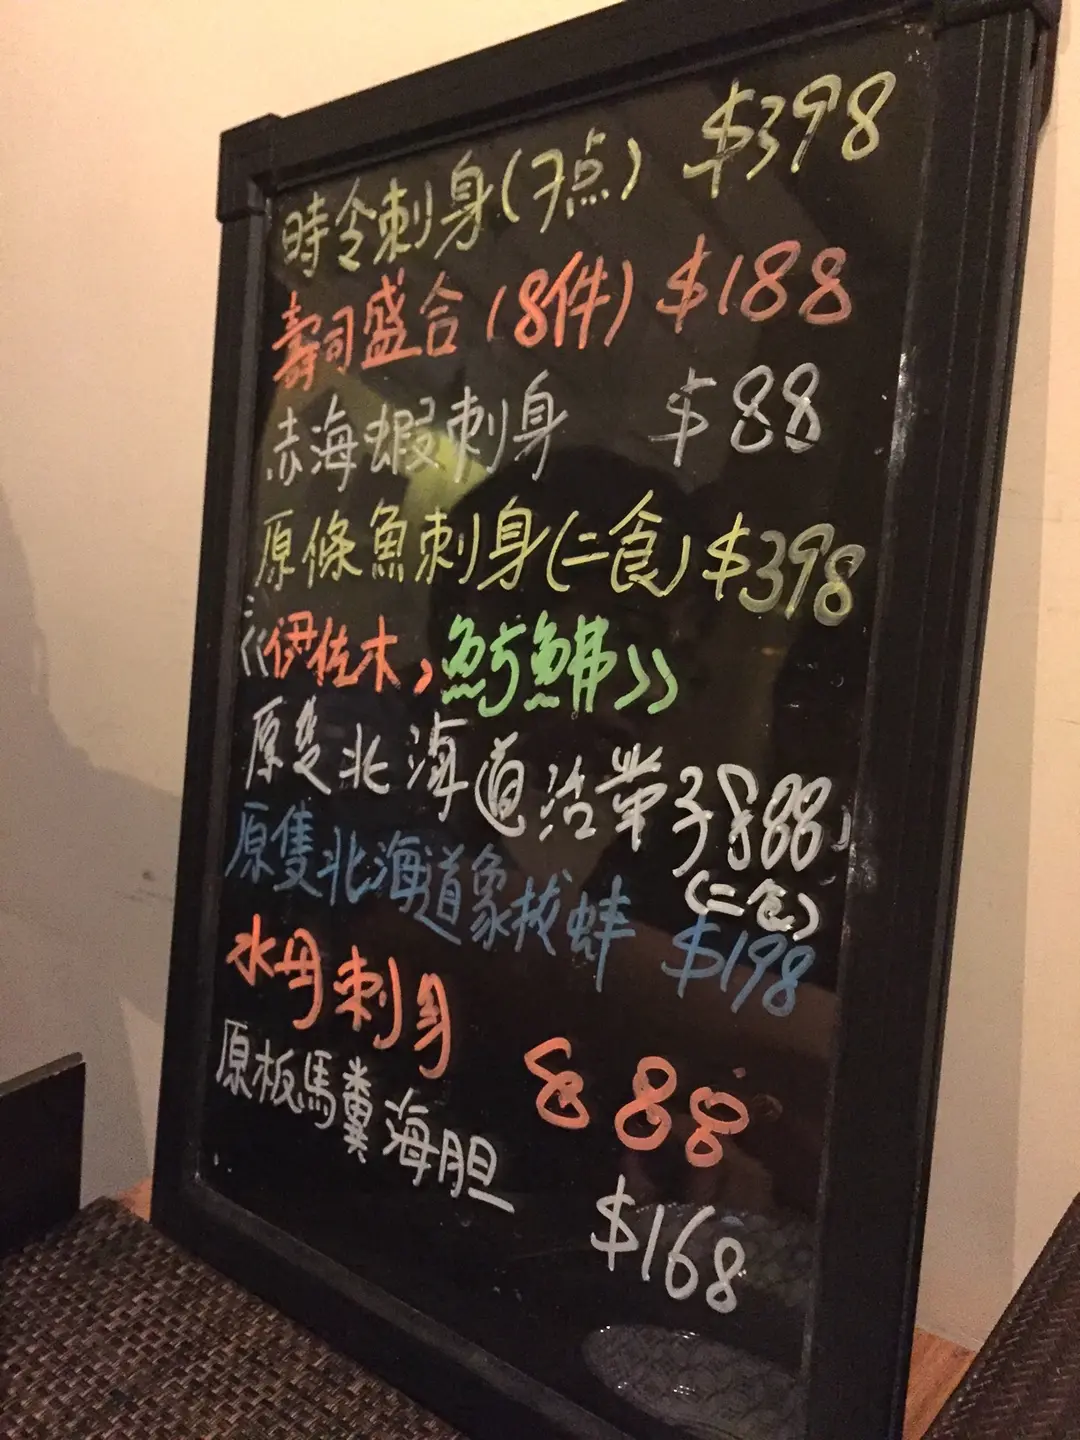 時令刺身(7点) $398
壽司盛合(8件) $188
赤海蝦刺身 $88
原條魚刺身(二食) $398
《伊佐木、魴鮄》
原隻北海道活帶子 $88
(二食)
原隻北海道象拔蚌 $198
水母刺身 $88
原板馬糞海胆
$168